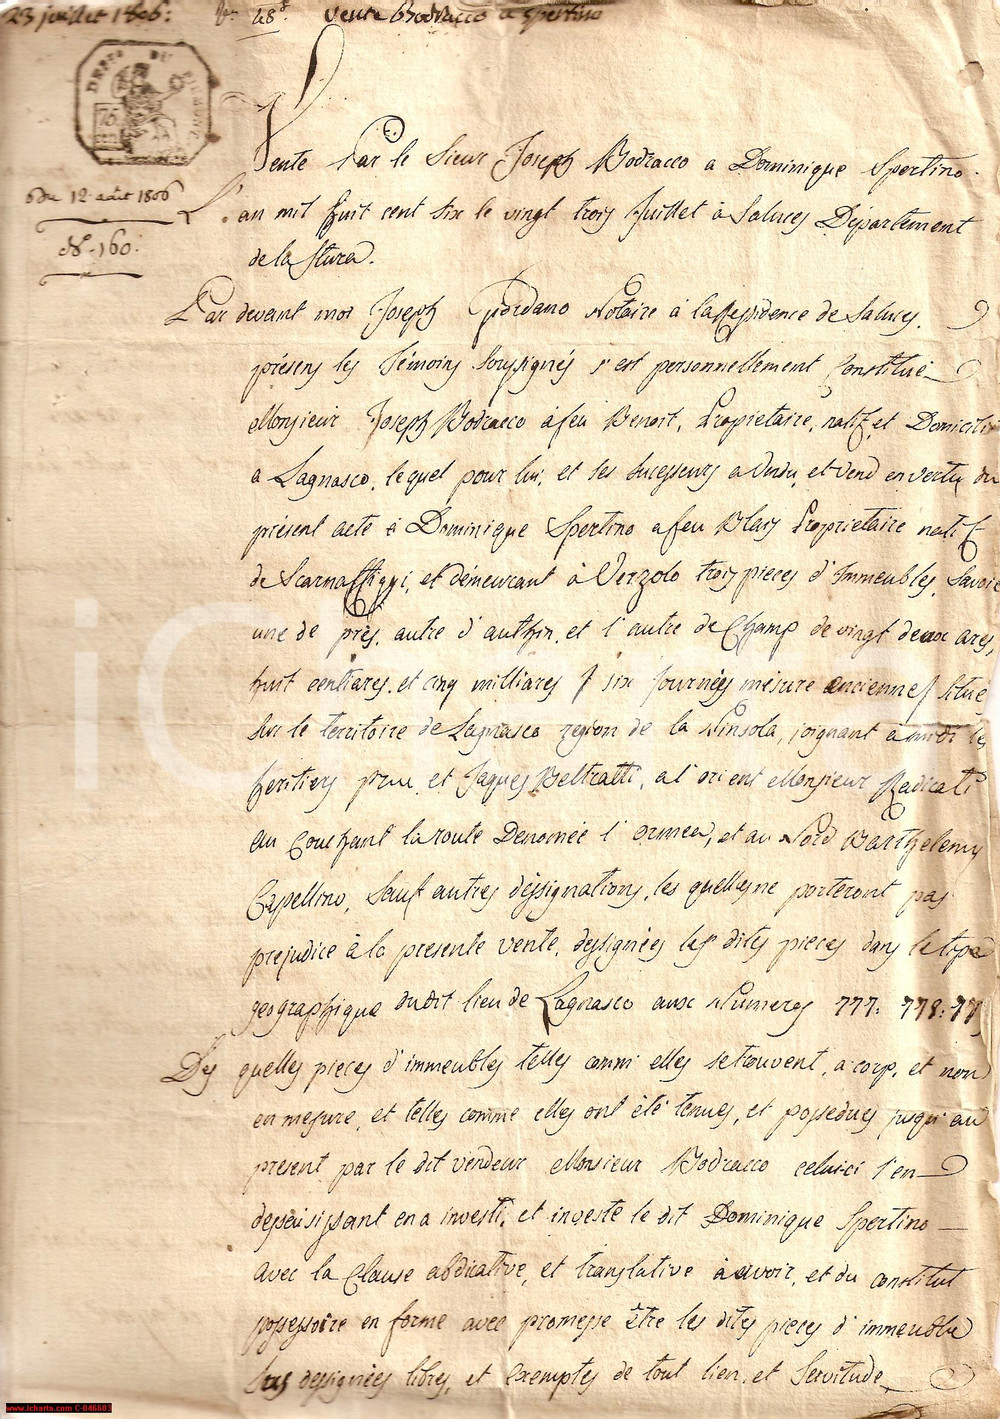 23 juillet 1806: N.º 48.º Vente Bodracco a Spertino
DEPT. DU
75
Du 12. août 1806
N.º 160.
Vente Par le Sieur Joseph Bodracco a Dominique Spertino.
L'an mil huit cent six le vingt trois Juillet à Saluces Département
de la Stura.
Par devant moi Joseph Giordano Notaire à la Residence de Saluces.
présens les Témoins soussignés s'est personnellement Constitué
Monsieur Joseph Bodracco à feu Benoit, Proprietaire, natif, et Domicilié
a Lagnasco, lequel pour lui, et ses successeurs a vendu, et vend en vertu du
présent acte à Dominique Spertino a feu Blais Proprietaire natif
de Scarnaffiggi, et démeurant à Verzolo trois pieces d'Immeubles, Savoir
une de près, autre d'authin, et l'autre de Champ de vingt deux ares,
huit centiares, et cinq milliares / six Journées mésure ancienne / situé
sur le territoire de Lagnasco region de la Ninsola, joignant à midi les
héritiers et Jaques Beltratti, a l'orient Monsieur Radicati
au Couchant la route Denomée l'ormea, et au Nord Barthelemy
Capellino, Sauf autres déssignations, les quelles ne porteront pas
prejudice à la presente vente, dessignées les dites pieces dans le tipe
geographique dudit lieu de Lagnasco aux Numeros 777: 778: 77
Les quelles pieces d'immeubles telles comm' elles se trouvent, a corp, et non
en mesure, et telles comme elles ont été tenues, et possedues jusqu'au
present par le dit vendeur Monsieur Bodracco celui-ci s'en
desseisissant en a investi, et investe le dit Dominique Spertino
avec la Clause abdicative, et translative à avoir, et du constitut
possessoire en forme avec promesse être les dites pieces d'immeuble
sus dessignées libres, et exemptes de tout lien, et Servitude
www.icharta.com C-046603